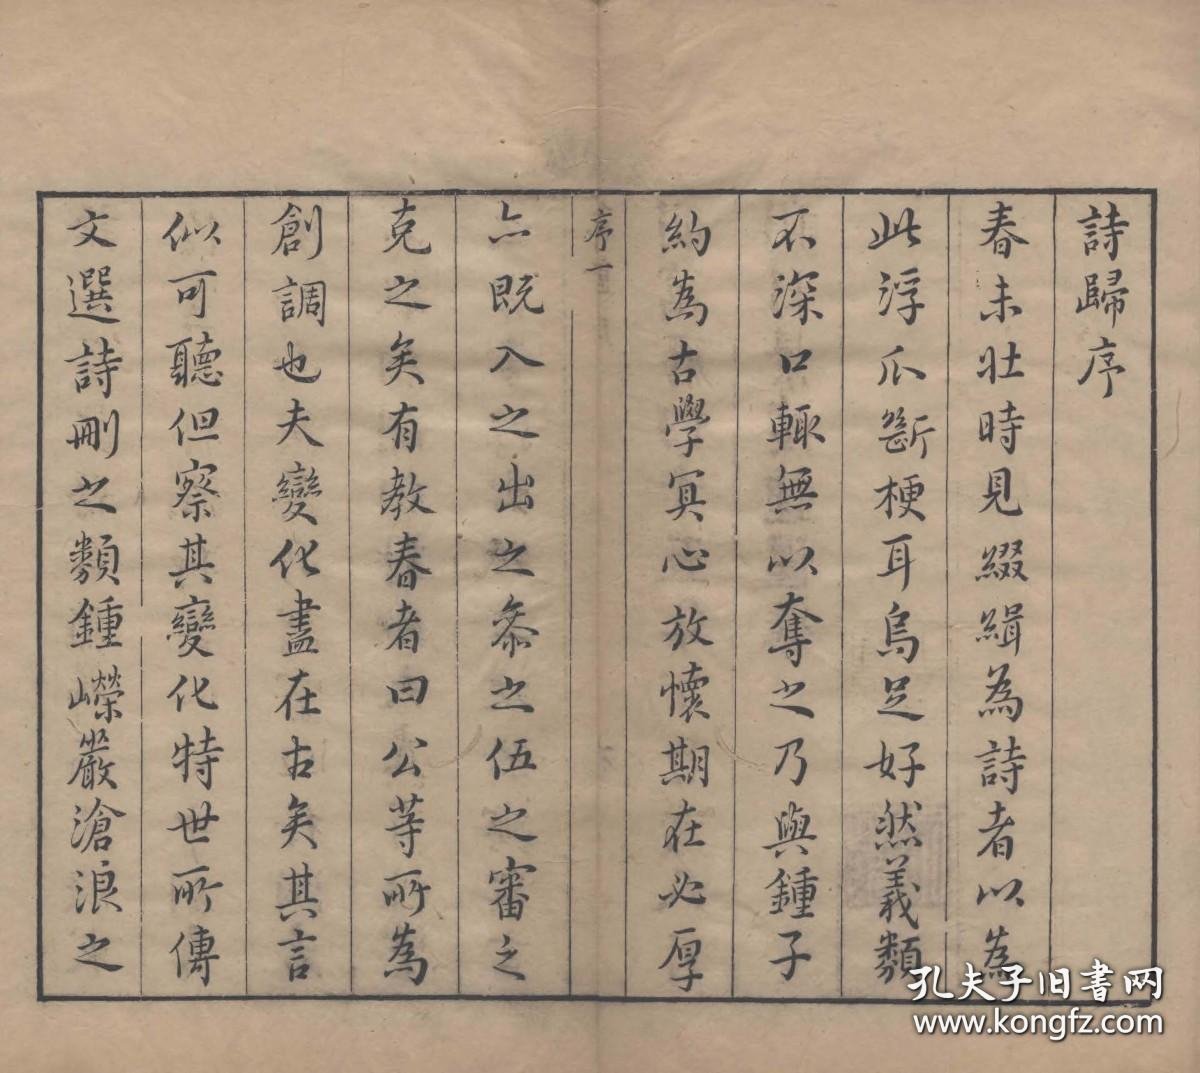 詩歸序
春未壯時見綴緝為詩者以為
此浮爪斷梗耳烏足好然義類
不深口輒無以奪之乃與鍾子
約為古學冥心放懷期在必厚
序一
亦既入之出之叅之伍之審之
克之矣有教春者曰公等所為
創調也夫變化盡在古矣其言
似可聽但察其變化特世所傳
文選詩刪之類鍾嶸嚴滄浪之
孔夫子旧书网
www.kongfz.com